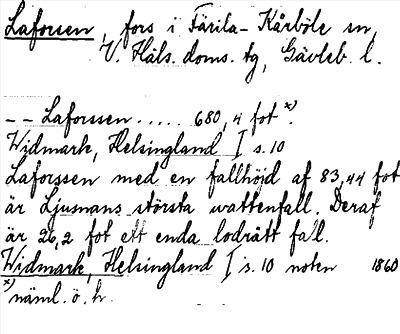 Laforsen, fors i Färila-Kårböle sn,
V. Häls. doms. tg, Gävleb. l.
-- Laforssen ..... 680,4 fot x).
Widmark, Helsingland I s. 10
Laforssen med en fallhöjd af 83,44 fot
är Ljusnans största wattenfall. Deraf
är 26,2 fot ett enda lodrätt fall.
Widmark, Helsingland I s. 10 noten 1860
x) näml. ö. h.